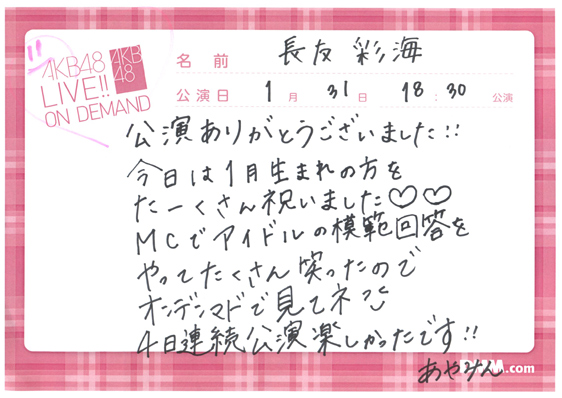 AKB48
LIVE!!
ON DEMAND
AKB
48
名前 長友 彩海
公演日 1月 31日 18:30 公演
公演ありがとうございました!!
今日は1月生まれの方を
たーくさん祝いました♡♡
MCでアイドルの模範回答を
やってたくさん笑ったので
オンデンマドで見てネ
4日連続公演楽しかったです!!
あやみん
.com